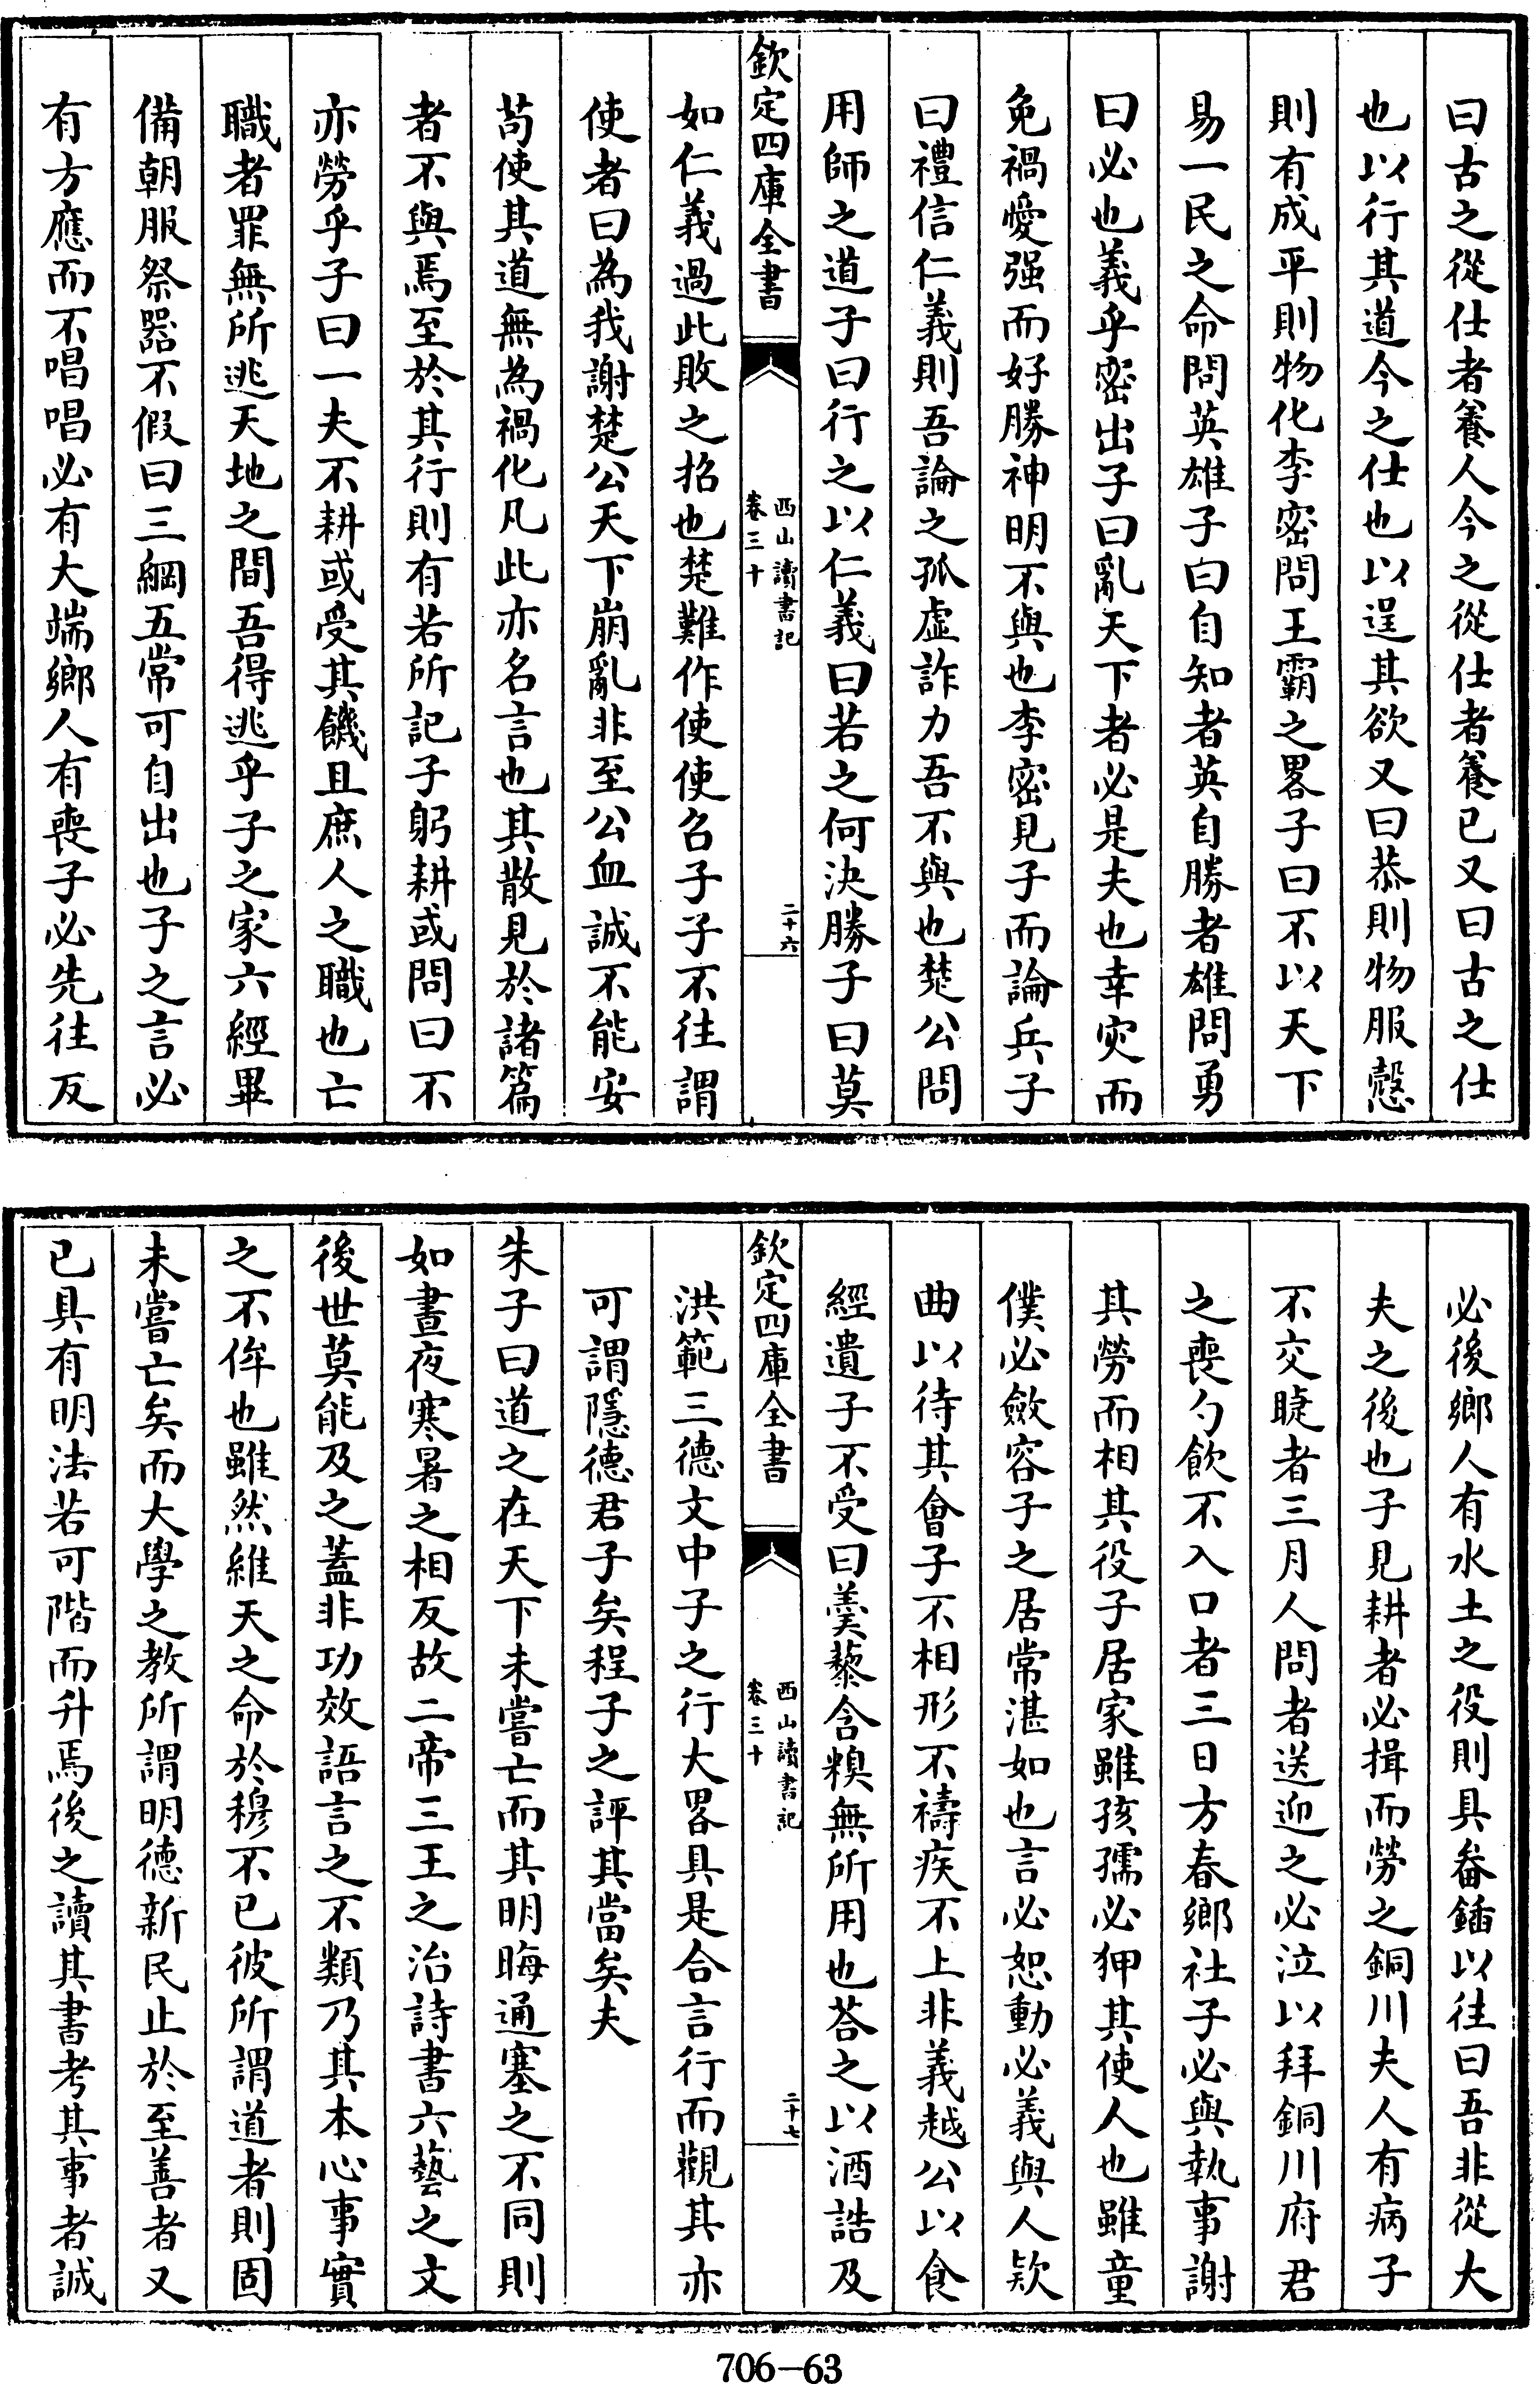 曰古之從仕者養人今之從仕者養已又曰古之仕
也以行其道今之仕也以逞其欲又曰恭則物服慤
則有成平則物化李密問王霸之畧子曰不以天下
易一民之命問英雄子曰自知者英自勝者雄問勇
曰必也義乎密出子曰亂天下者必是夫也幸灾而
免禍愛强而好勝神明不與也李密見子而論兵子
曰禮信仁義則吾論之孤虚詐力吾不與也楚公問
用師之道子曰行之以仁義曰若之何決勝子曰莫
欽定四庫全書
西山讀書記
卷三十
二十六
如仁義過此敗之招也楚難作使使召子子不往謂
使者曰為我謝楚公天下崩亂非至公血誠不能安
苟使其道無為禍化凡此亦名言也其散見於諸篇
者不與焉至於其行則有若所記子躬耕或問曰不
亦勞乎子曰一夫不耕或受其饑且庶人之職也亡
職者罪無所逃天地之間吾得逃乎子之家六經畢
備朝服祭器不假曰三綱五常可自出也子之言必
有方應而不唱唱必有大端鄉人有喪子必先往反
必後鄉人有水土之役則具畚鍤以往曰吾非從大
夫之後也子見耕者必揖而勞之銅川夫人有病子
不交睫者三月人問者送迎之必泣以拜銅川府君
之喪勺飲不入口者三日方春鄉社子必與執事謝
其勞而相其役子居家雖孩孺必狎其使人也雖童
僕必斂容子之居常湛如也言必恕動必義與人欵
曲以待其會子不相形不禱疾不上非義越公以食
經遺子不受曰羹藜含糗無所用也荅之以酒誥及
欽定四庫全書
西山讀書記
卷三十
二十七
洪範三德文中子之行大畧具是合言行而觀其亦
可謂隱德君子矣程子之評其當矣夫
朱子曰道之在天下未嘗亡而其明晦通塞之不同則
如晝夜寒暑之相反故二帝三王之治詩書六藝之文
後世莫能及之蓋非功效語言之不類乃其本心事實
之不侔也雖然維天之命於穆不已彼所謂道者則固
未嘗亡矣而大學之教所謂明德新民止於至善者又
已具有明法若可階而升焉後之讀其書考其事者誠
706-63